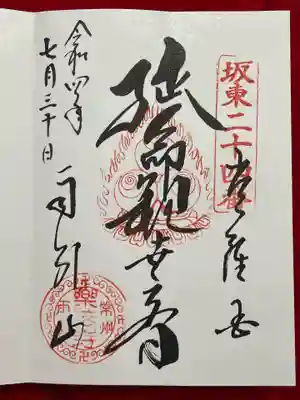 坂東二十四番
延命観世音
雨引山
令和四年
七月三十日